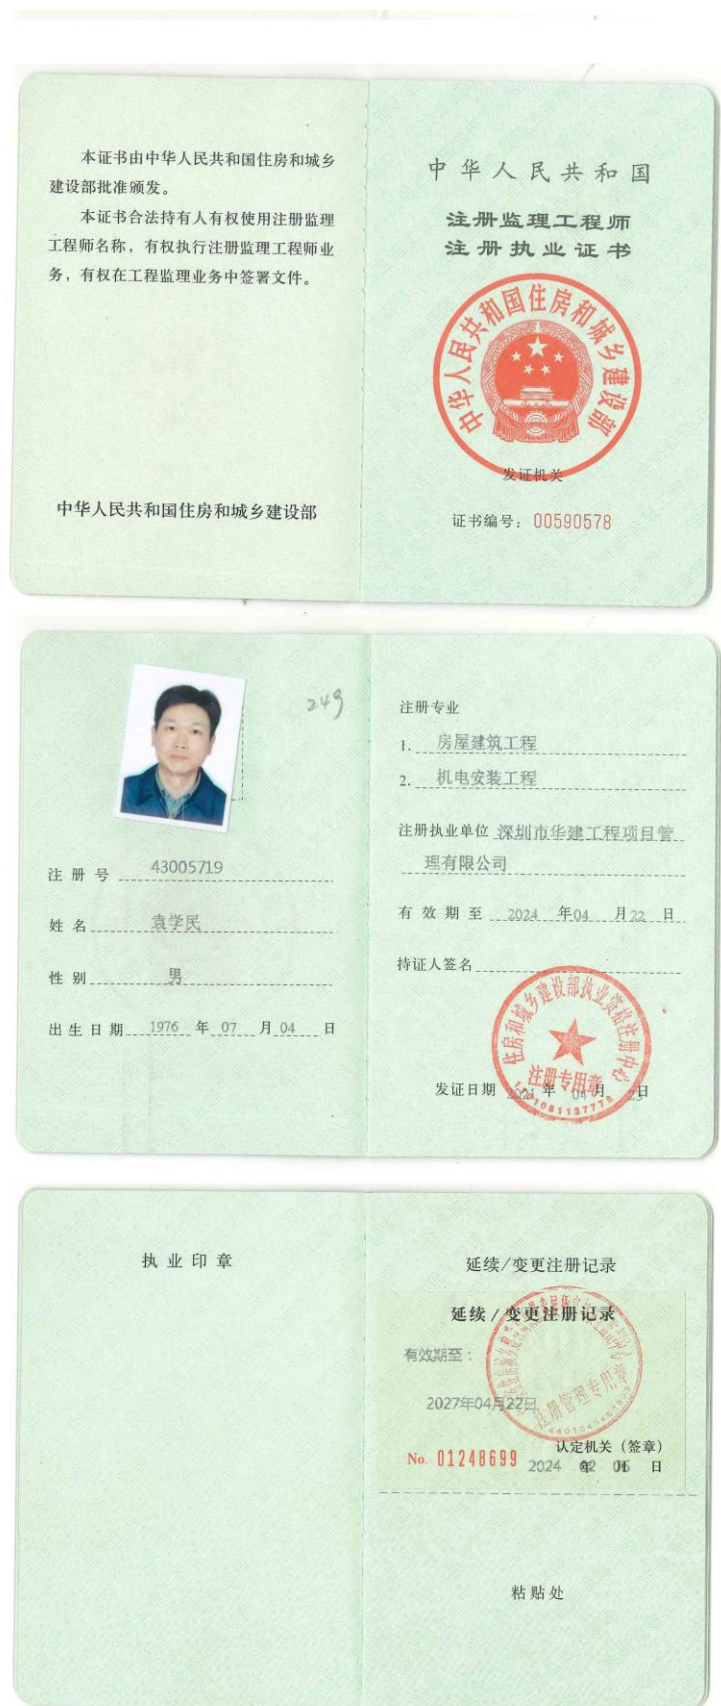 本证书由中华人民共和国住房和城乡
建设部批准颁发。
本证书合法持有人有权使用注册监理
工程师名称，有权执行注册监理工程师业
务，有权在工程监理业务中签署文件。
中华人民共和国住房和城乡建设部
中华人民共和国
注册监理工程师
注册执业证书
中华人民共和国住房和城乡建设部
发证机关
证书编号：00590578
249
注册号 43005719
姓名 袁学民
性别 男
出生日期 1976 年 07 月 04 日
注册专业
1. 房屋建筑工程
2. 机电安装工程
注册执业单位 深圳市华建工程项目管
理有限公司
有效期至 2024 年 04 月 22 日
持证人签名
住房和城乡建设部执业资格注册中心
注册专用章
发证日期 年 04 月 日
执业印章
延续/变更注册记录
延续/变更注册记录
有效期至：
2027年04月22日
注册管理专用章
认定机关（签章）
No. 01248699
2024 年 02 月 日
粘贴处